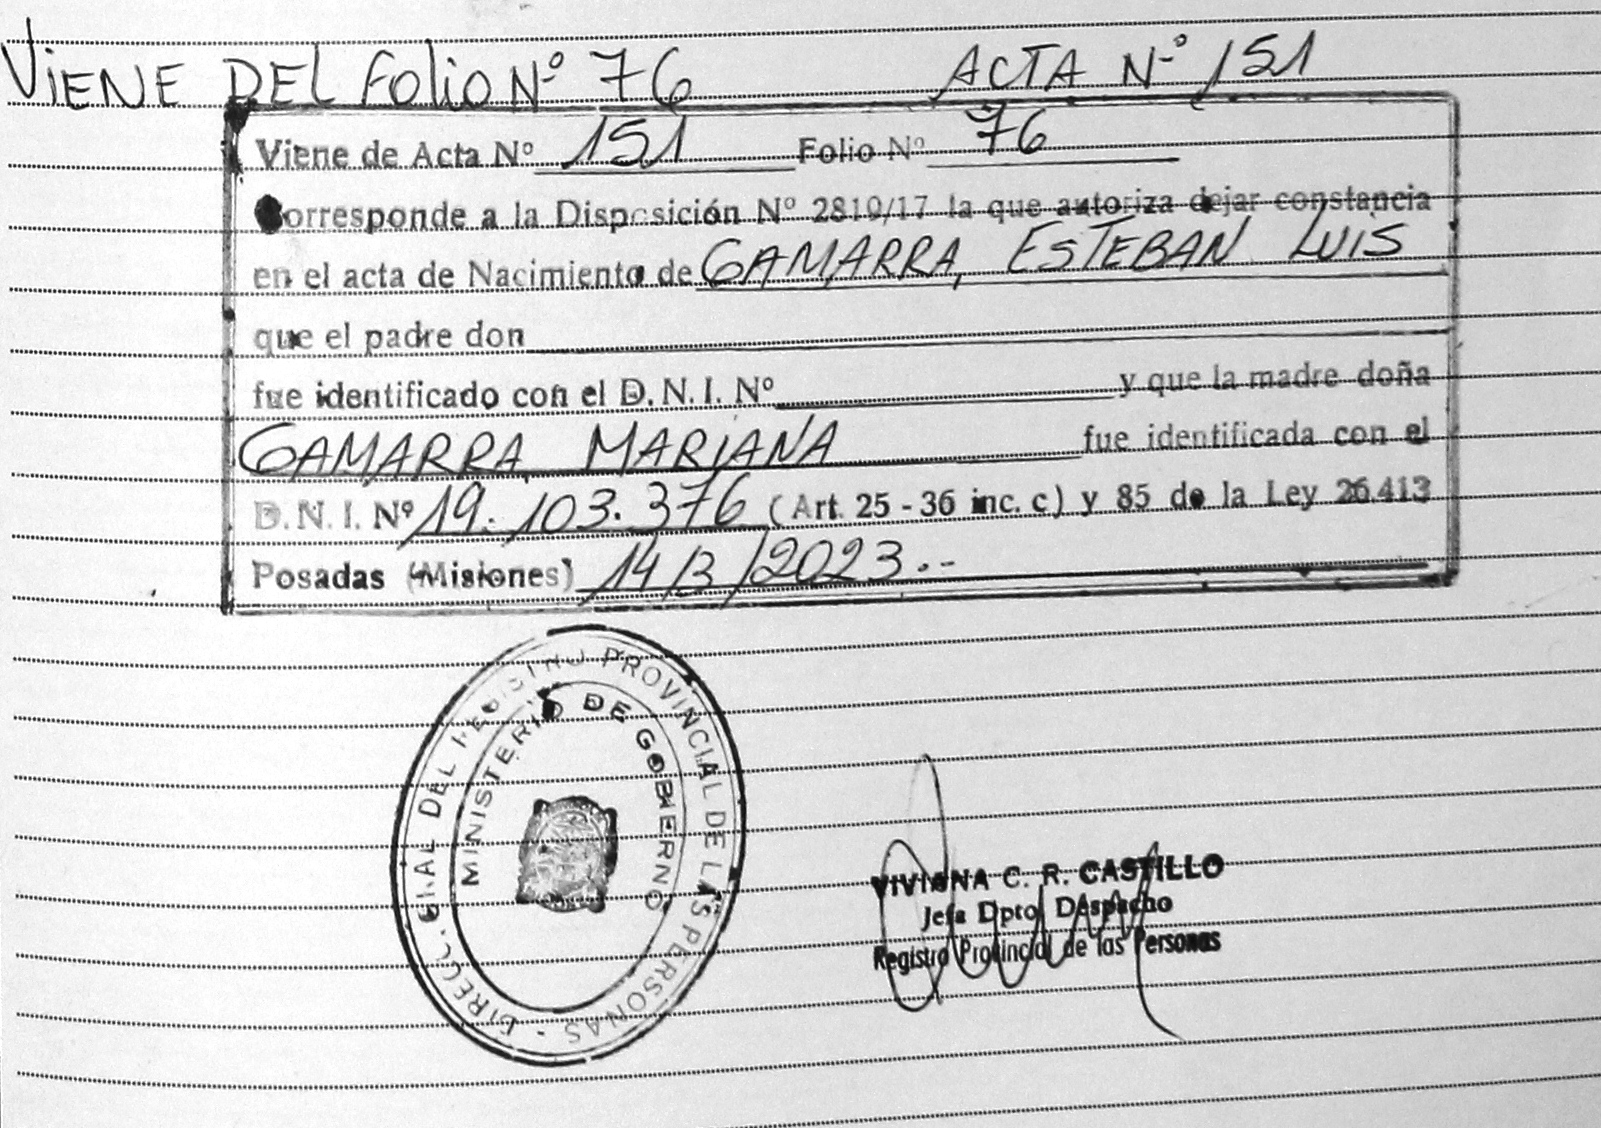 VIENE DEL FOLIO Nº 76 ACTA Nº 151
Viene de Acta Nº 151 Folio Nº 76
Corresponde a la Disposición Nº 2819/17 la que autoriza dejar constancia
en el acta de Nacimiento de GAMARRA, ESTEBAN LUIS
que el padre don
fue identificado con el D.N.I. Nº y que la madre doña
GAMARRA, MARIANA fue identificada con el
D.N.I. Nº 19.103.376 (Art. 25 - 36 inc. c) y 85 de la Ley 26.413
Posadas (Misiones) 14/3/2023.--
DIRECC. GRAL DEL REGISTRO PROVINCIAL DE LAS PERSONAS -
MINISTERIO DE GOBIERNO
VIVIANA C. R. CASTILLO
Jefa Dpto Despacho
Registro Provincial de las Personas